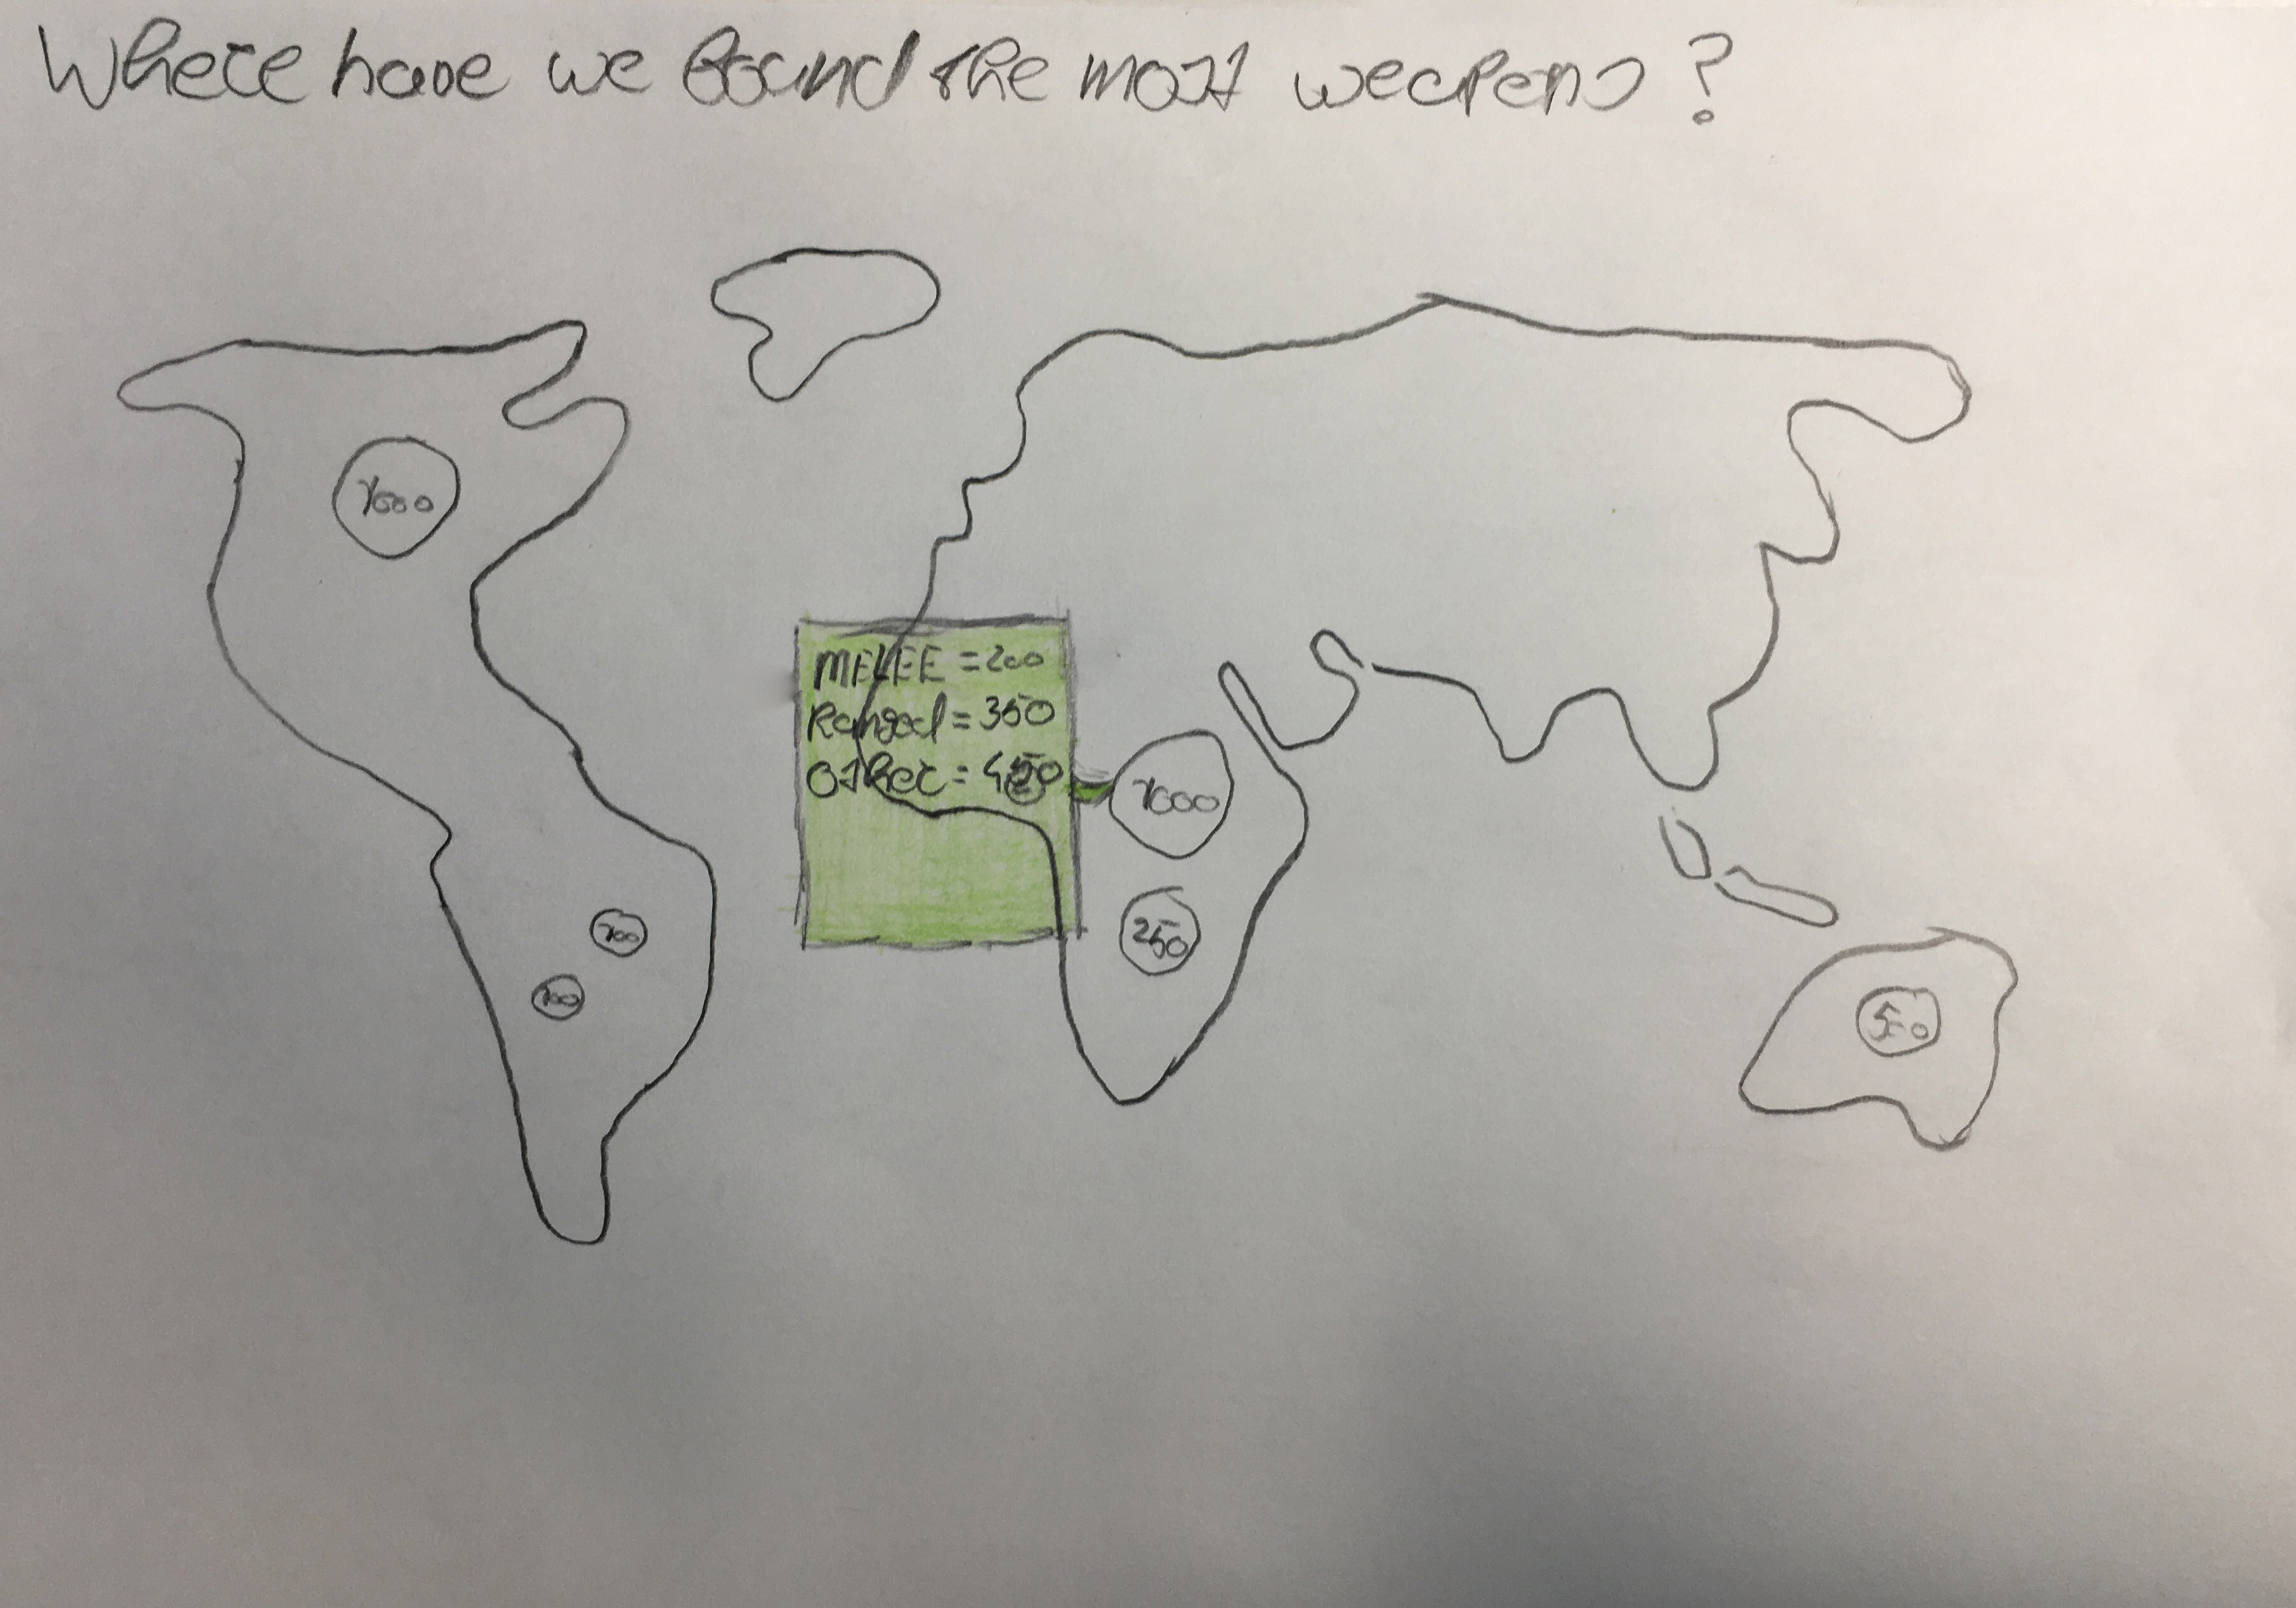 Where have we found the most weapens?
1000
MELEE = 200
Ranged = 350
OTher = 450
1000
100
250
100
500